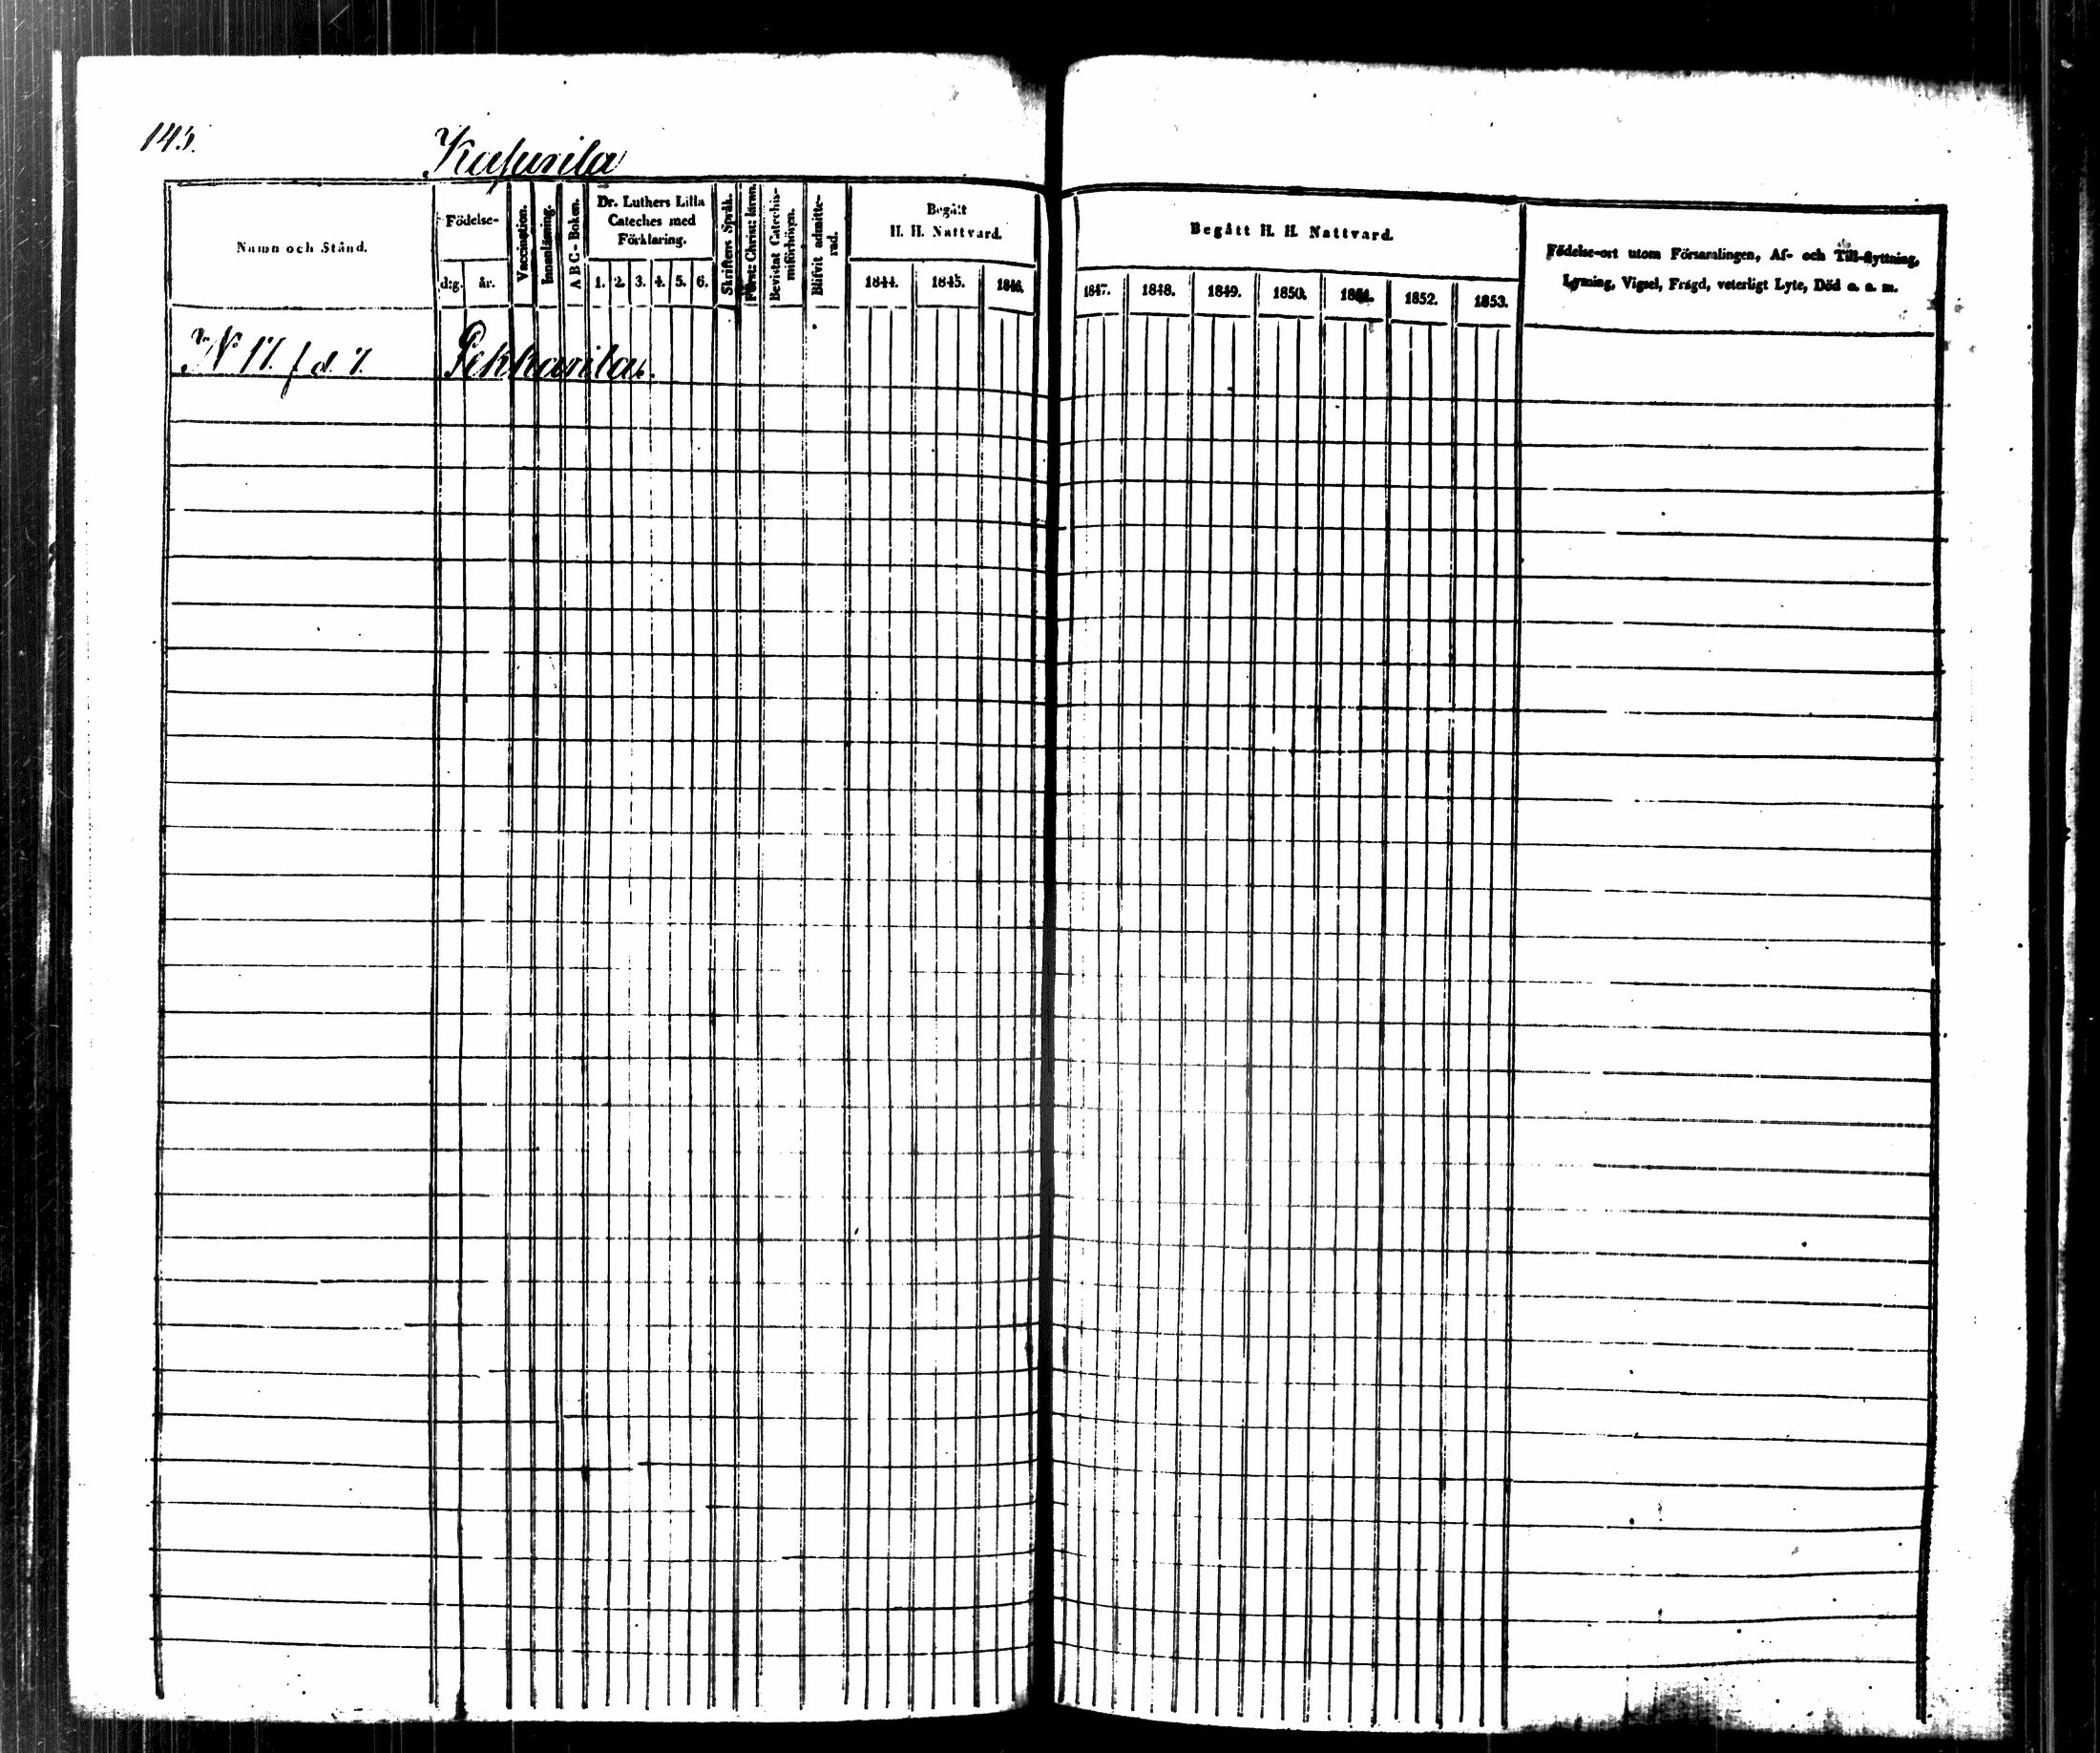 145.
Kasurila
Namn och Stånd.
Födelse-
d:g. år.
Vaccination.
Innanläsning.
A B C - Boken.
Dr. Luthers Lilla
Cateches med
Förklaring.
1. 2. 3. 4. 5. 6.
Skriftens Språk.
Först: Christ: läran.
Bevistat Catechis-
miförhören.
Blifvit admitte-
rad.
Begått
H. H. Nattvard.
1844. 1845. 1846.
Begått H. H. Nattvard.
1847. 1848. 1849. 1850. 1851. 1852. 1853.
Födelse-ort utom Församlingen, Af- och Till-flyttning,
Lysning, Vigsel, Frägd, veterligt Lyte, Död o. a. m.
No 17. f d 7. Pekkarila.